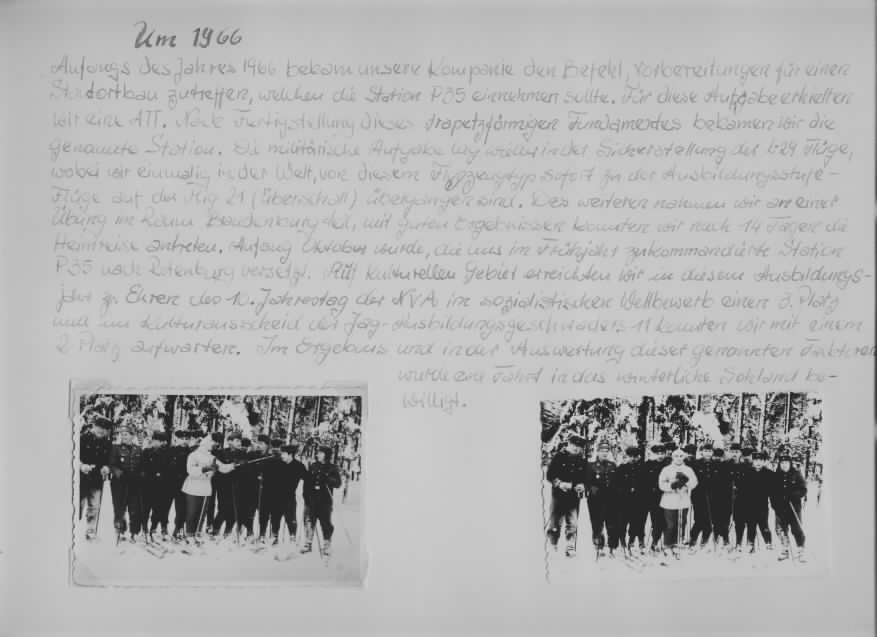 Um 1966
Anfangs des Jahres 1966 bekam unsere Kompanie den Befehl, Vorbereitungen für einen
Standortbau zu treffen, welchen die Station P35 einnehmen sollte. Für diese Aufgabe erhielten
wir eine ATT. Nach Fertigstellung dieses trapetzförmigen Fundamentes bekamen wir die
genannte Station. Die militärische Aufgabe lag weiter in der Sicherstellung der L29 Flüge,
wobei wir einmalig in der Welt, von diesem Flugzeugtyp sofort zu der Ausbildungsstufe-
Flüge auf der Mig 21 (Überschall) übergangen sind. Des weiteren nahmen wir an einer
Übung im Raum teil, mit guten Ergebnissen konnten wir nach 14 Tagen die
Heimreise antreten. Anfang Oktober wurde, die uns im Frühjahr zukommandierte Station
P35 nach Rotenburg versetzt. Auf kulturellen Gebiet erreichten wir in diesem Ausbildungs-
jahr zu Ehren des 10. Jahrestag der NVA im sozialistischen Wettbewerb einen 3. Platz
und im Kulturausscheid des Jag-Ausbildungsgeschwaders-11 konnten wir mit einem
2. Platz aufwarten. Im Ergebnis und in der Auswertung dieser genannten Faktoren
wurde eine Fahrt in das winterliche be-
willigt.